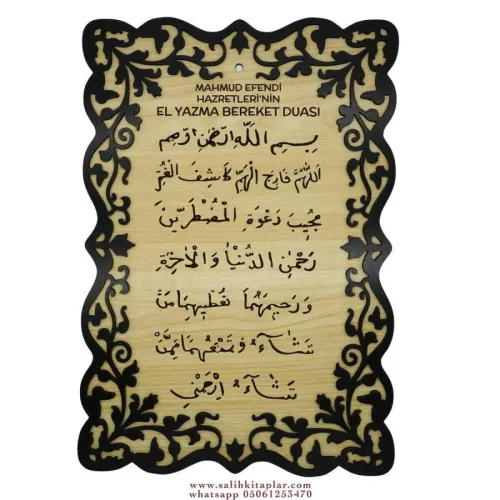 MAHMUD EFENDİ
HAZRETLERİ'NİN
EL YAZMA BEREKET DUASI
بِسْمِ اللّٰهِ الرَّحْمٰنِ الرَّحِيمِ
اَللّٰهُمَّ فَارِجَ الْهَمِّ كَاشِفَ الْغَمِّ
مُجِيبَ دَعْوَةِ الْمُضْطَرِّينَ
رَحْمٰنَ الدُّنْيَا وَالْاٰخِرَةِ
وَرَحِيمَهُمَا تُعْطِيهِمَا مَنْ
تَشَٓاءُ وَتَمْنَعُهُمَا مِمَّنْ
تَشَٓاءُ اِرْحَمْنِي
www.salihkitaplar.com
whatsapp 05061253470